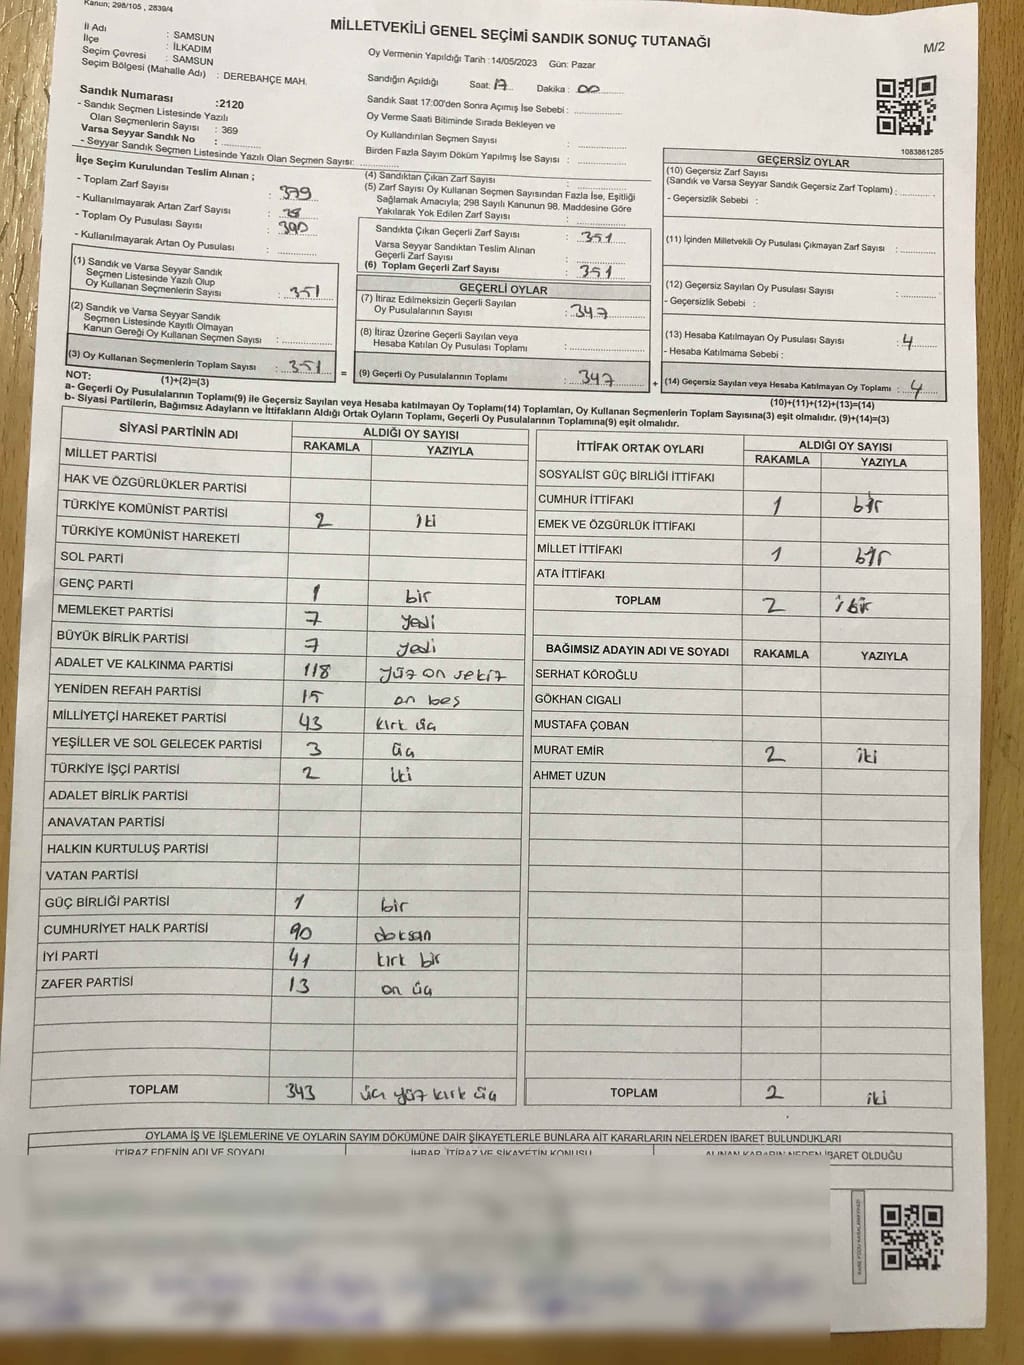 Kanun; 298/105 , 2839/4
MİLLETVEKİLİ GENEL SEÇİMİ SANDIK SONUÇ TUTANAĞI
M/2
İl Adı : SAMSUN
İlçe : İLKADIM
Seçim Çevresi : SAMSUN
Seçim Bölgesi (Mahalle Adı) : DEREBAHÇE MAH.
Sandık Numarası :2120
- Sandık Seçmen Listesinde Yazılı
Olan Seçmenlerin Sayısı : 369
Varsa Seyyar Sandık No :
- Seyyar Sandık Seçmen Listesinde Yazılı Olan Seçmen Sayısı:
Oy Vermenin Yapıldığı Tarih :14/05/2023 Gün: Pazar
Sandığın Açıldığı Saat: 17 Dakika : 00
Sandık Saat 17:00'den Sonra Açımış İse Sebebi :
Oy Verme Saati Bitiminde Sırada Bekleyen ve
Oy Kullandırılan Seçmen Sayısı :
Birden Fazla Sayım Döküm Yapılmış İse Sayısı :
1083861285
İlçe Seçim Kurulundan Teslim Alınan ;
- Toplam Zarf Sayısı : 379
- Kullanılmayarak Artan Zarf Sayısı :
- Toplam Oy Pusulası Sayısı :
- Kullanılmayarak Artan Oy Pusulası :
(1) Sandık ve Varsa Seyyar Sandık
Seçmen Listesinde Yazılı Olup
Oy Kullanan Seçmenlerin Sayısı : 351
(2) Sandık ve Varsa Seyyar Sandık
Seçmen Listesinde Kayıtlı Olmayan
Kanun Gereği Oy Kullanan Seçmen Sayısı :
(3) Oy Kullanan Seçmenlerin Toplam Sayısı : 351
(4) Sandıktan Çıkan Zarf Sayısı :
(5) Zarf Sayısı Oy Kullanan Seçmen Sayısından Fazla İse, Eşitliği
Sağlamak Amacıyla; 298 Sayılı Kanunun 98. Maddesine Göre
Yakılarak Yok Edilen Zarf Sayısı :
Sandıkta Çıkan Geçerli Zarf Sayısı : 351
Varsa Seyyar Sandıktan Teslim Alınan
Geçerli Zarf Sayısı :
(6) Toplam Geçerli Zarf Sayısı : 351
GEÇERLİ OYLAR
(7) İtiraz Edilmeksizin Geçerli Sayılan
Oy Pusulalarının Sayısı : 347
(8) İtiraz Üzerine Geçerli Sayılan veya
Hesaba Katılan Oy Pusulası Toplamı :
= (9) Geçerli Oy Pusulalarının Toplamı : 347
GEÇERSİZ OYLAR
(10) Geçersiz Zarf Sayısı
(Sandık ve Varsa Seyyar Sandık Geçersiz Zarf Toplamı) :
- Geçersizlik Sebebi :
(11) İçinden Milletvekili Oy Pusulası Çıkmayan Zarf Sayısı :
(12) Geçersiz Sayılan Oy Pusulası Sayısı :
- Geçersizlik Sebebi :
(13) Hesaba Katılmayan Oy Pusulası Sayısı : 4
- Hesaba Katılmama Sebebi :
+ (14) Geçersiz Sayılan veya Hesaba Katılmayan Oy Toplamı : 4
NOT: (1)+(2)=(3) (10)+(11)+(12)+(13)=(14)
a- Geçerli Oy Pusulalarının Toplamı(9) ile Geçersiz Sayılan veya Hesaba katılmayan Oy Toplamı(14) Toplamları, Oy Kullanan Seçmenlerin Toplam Sayısına(3) eşit olmalıdır. (9)+(14)=(3)
b- Siyasi Partilerin, Bağımsız Adayların ve İttifakların Aldığı Ortak Oyların Toplamı, Geçerli Oy Pusulalarının Toplamına(9) eşit olmalıdır.
SİYASİ PARTİNİN ADI ALDIĞI OY SAYISI
RAKAMLA YAZIYLA
MİLLET PARTİSİ
HAK VE ÖZGÜRLÜKLER PARTİSİ
TÜRKİYE KOMÜNİST PARTİSİ 2 iki
TÜRKİYE KOMÜNİST HAREKETİ
SOL PARTİ
GENÇ PARTİ 1 bir
MEMLEKET PARTİSİ 7 yedi
BÜYÜK BİRLİK PARTİSİ 7 yedi
ADALET VE KALKINMA PARTİSİ 118 yüz on sekiz
YENİDEN REFAH PARTİSİ 15 on beş
MİLLİYETÇİ HAREKET PARTİSİ 43 kırk üç
YEŞİLLER VE SOL GELECEK PARTİSİ 3 üç
TÜRKİYE İŞÇİ PARTİSİ 2 iki
ADALET BİRLİK PARTİSİ
ANAVATAN PARTİSİ
HALKIN KURTULUŞ PARTİSİ
VATAN PARTİSİ
GÜÇ BİRLİĞİ PARTİSİ 1 bir
CUMHURİYET HALK PARTİSİ 90 doksan
İYİ PARTİ 41 kırk bir
ZAFER PARTİSİ 13 on üç
TOPLAM 343 üç yüz kırk üç
İTTİFAK ORTAK OYLARI ALDIĞI OY SAYISI
RAKAMLA YAZIYLA
SOSYALİST GÜÇ BİRLİĞİ İTTİFAKI
CUMHUR İTTİFAKI 1 bir
EMEK VE ÖZGÜRLÜK İTTİFAKI
MİLLET İTTİFAKI 1 bir
ATA İTTİFAKI
TOPLAM 2
BAĞIMSIZ ADAYIN ADI VE SOYADI RAKAMLA YAZIYLA
SERHAT KÖROĞLU
GÖKHAN CIGALI
MUSTAFA ÇOBAN
MURAT EMİR 2 iki
AHMET UZUN
TOPLAM 2 iki
OYLAMA İŞ VE İŞLEMLERİNE VE OYLARIN SAYIM DÖKÜMÜNE DAİR ŞİKAYETLERLE BUNLARA AİT KARARLARIN NELERDEN İBARET BULUNDUKLARI
İTİRAZ EDENİN ADI VE SOYADI İHBAR, İTİRAZ VE ŞİKAYETİN KONUSU ALINAN KARARIN NEDEN İBARET OLDUĞU